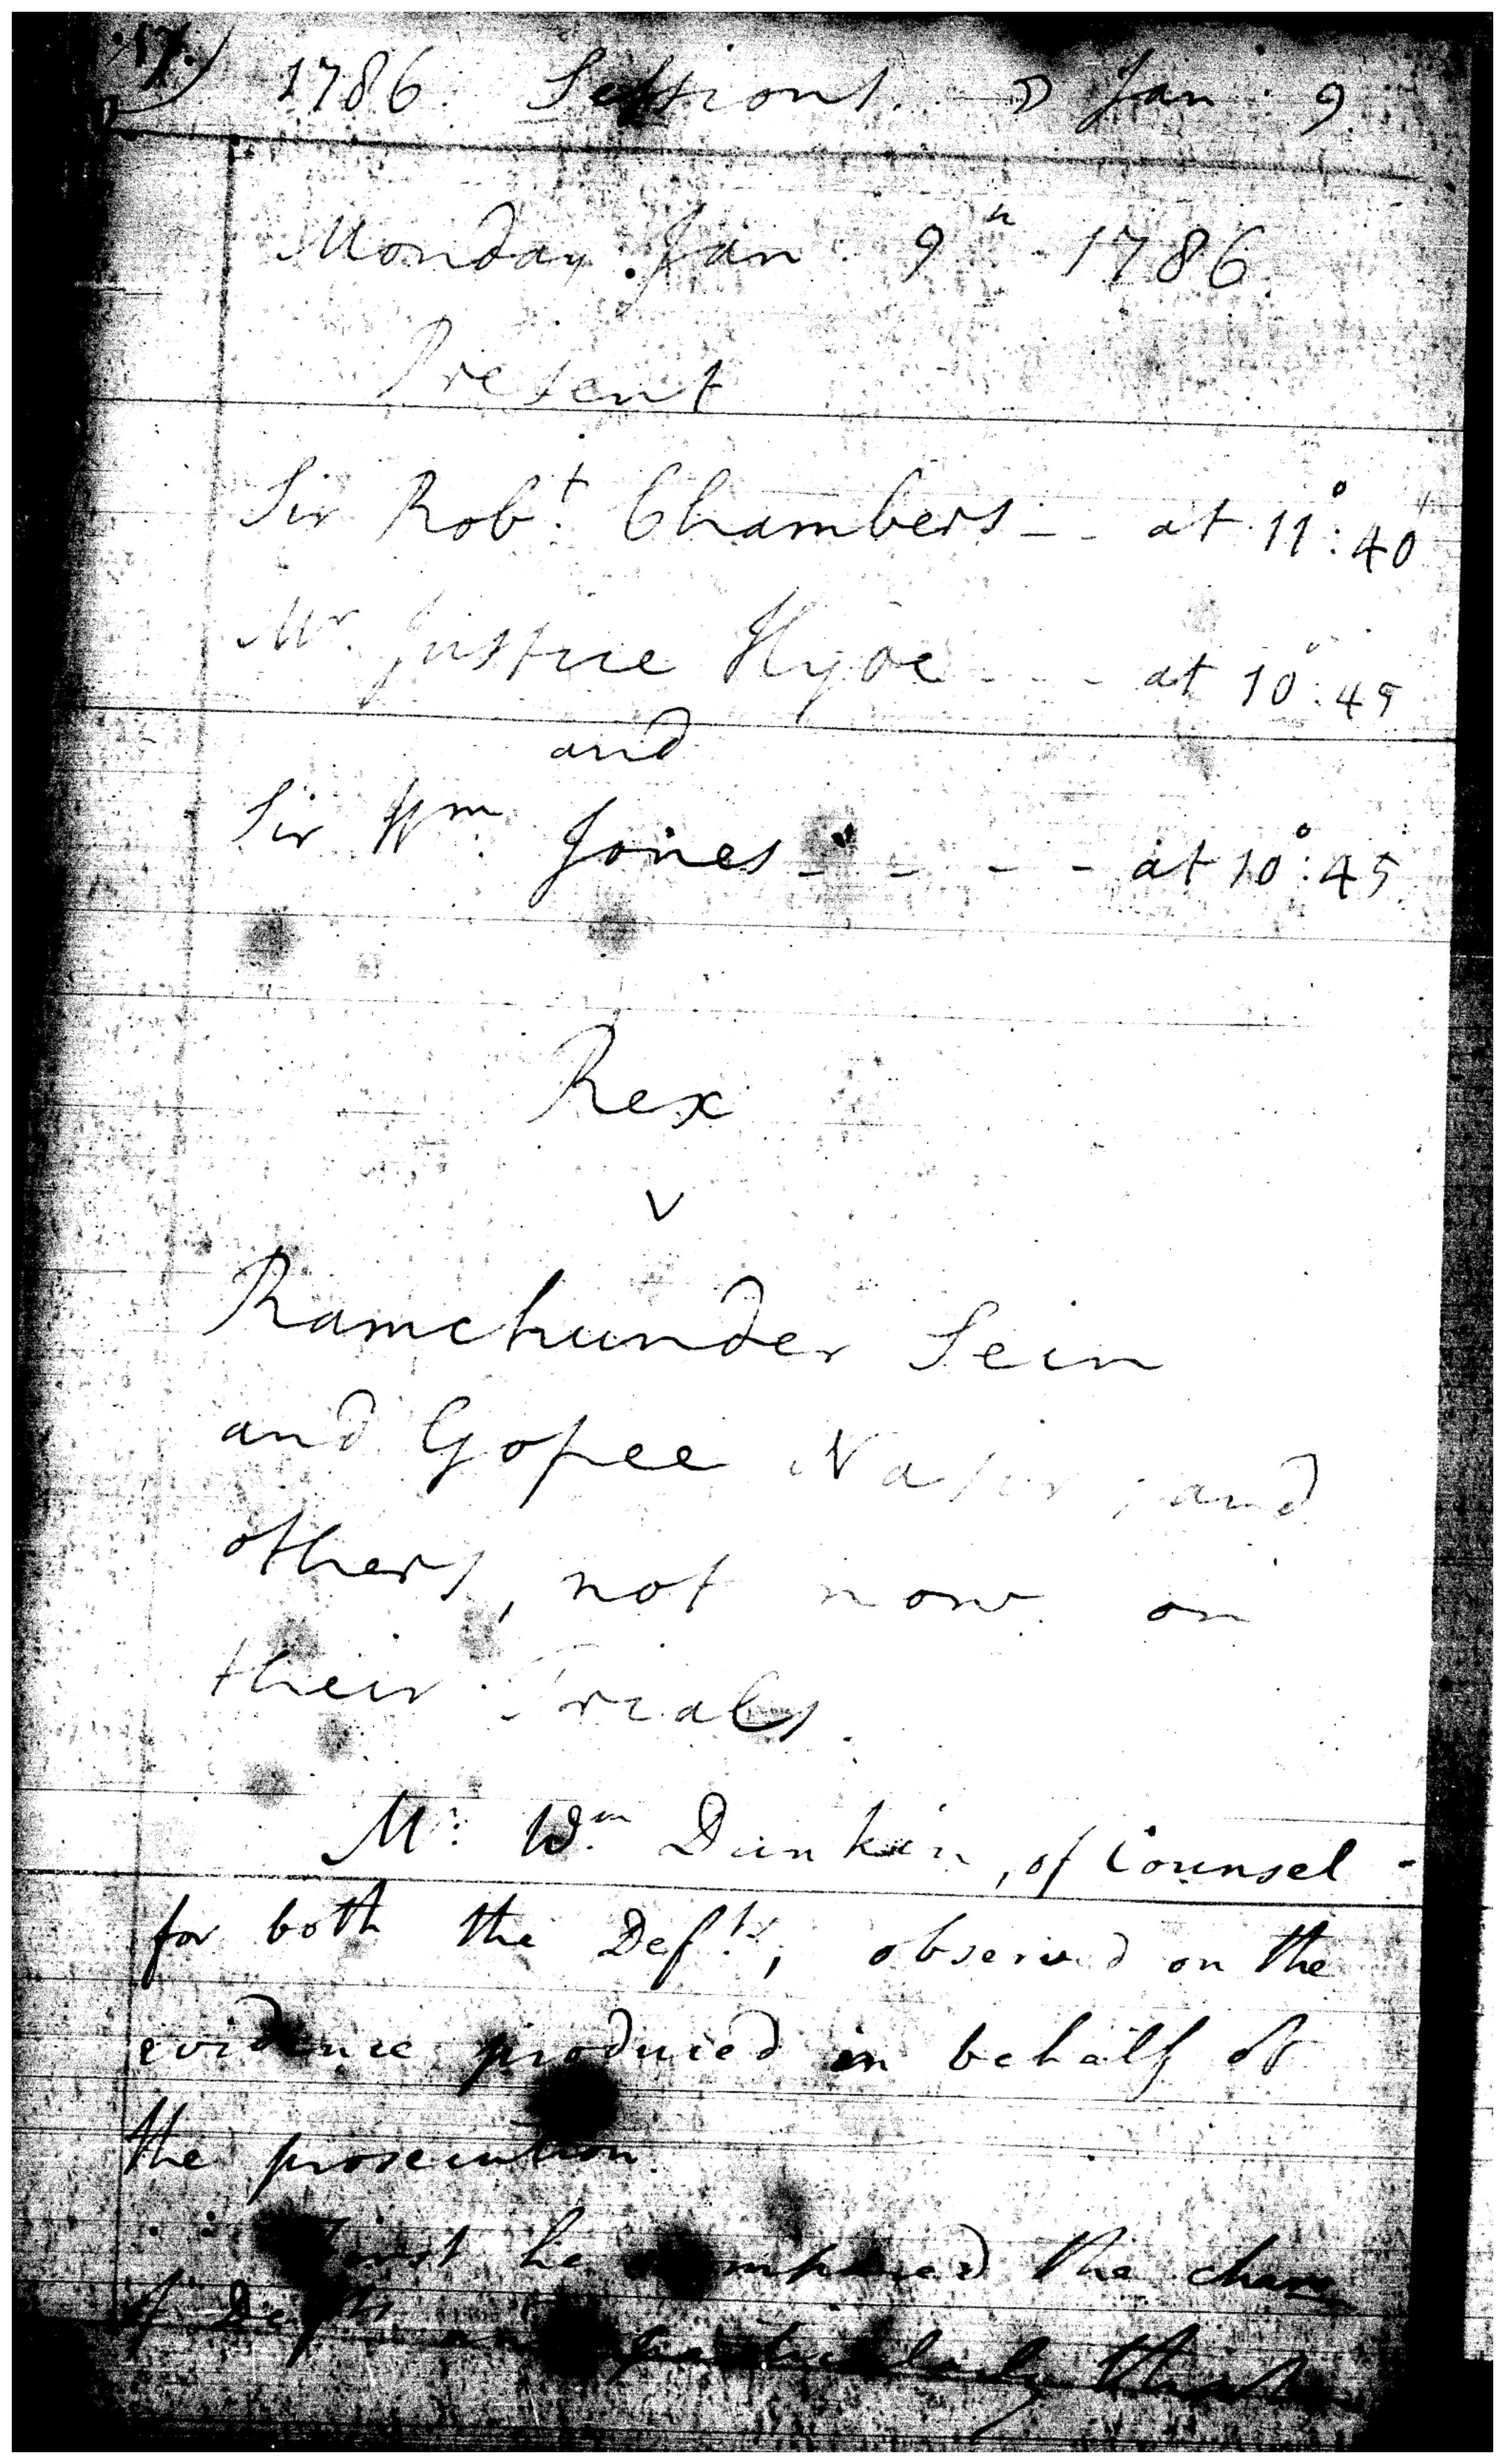 17.
1786. Sessions. ☽ Jan. 9
Monday. Jan. 9th 1786.
Present
Sir Robt. Chambers - - at 11°: 40'
Mr. Justice Hyde - - - at 10°: 45
and
Sir Wm. Jones - - - - at 10°: 45
Rex
v
Ramchunder Sein
and Gopee Nazir, and
others, not now on
their Trials.
Mr. Wm. Dunkin, of Counsel
for both the Defts., observed on the
evidence produced in behalf of
the prosecution
First he compared the
of Defts and particularly